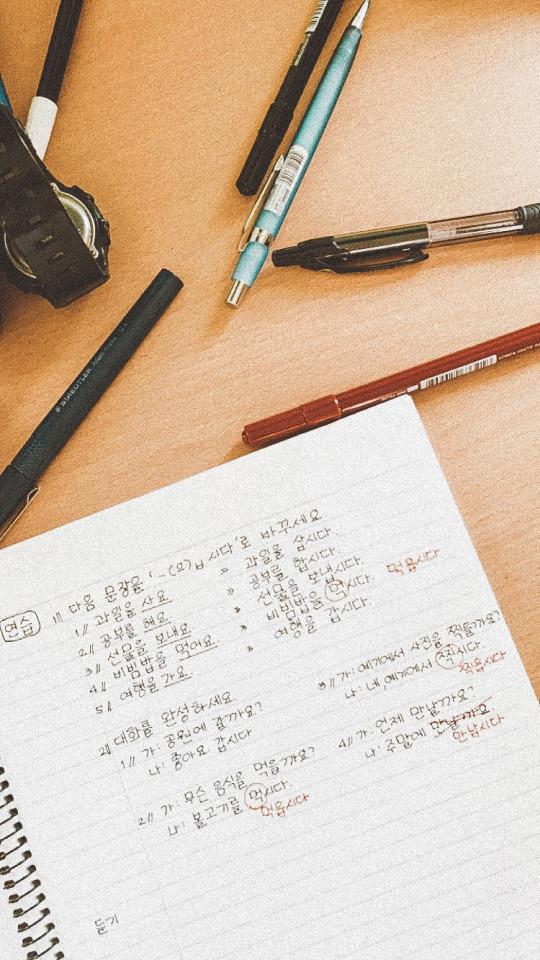 STAEDTLER
연습 1// 다음 문장을 '-(으)ㅂ시다'로 바꾸세요
1// 과일을 사요 » 과일을 삽시다.
2// 공부를 해요 » 공부를 합시다.
3// 선물을 보내요 » 선물을 보냅시다.
4// 비빔밥을 먹어요 » 비빔밥을 먹시다. 먹읍시다
5// 여행을 가요. » 여행을 갑시다.
2// 대화를 완성하세요
1// 가: 공원에 갈까요?
나: 좋아요 갑시다
2// 가: 무슨 음식을 먹을까요?
나: 불고기를 먹시다.
먹읍시다
3// 가: 여기에서 사진을 찍을까요?
나: 네, 여기에서 찍시다.
찍읍시다
4// 가: 언제 만날까요?
나: 주말에 만날까요
만납시다
듣기